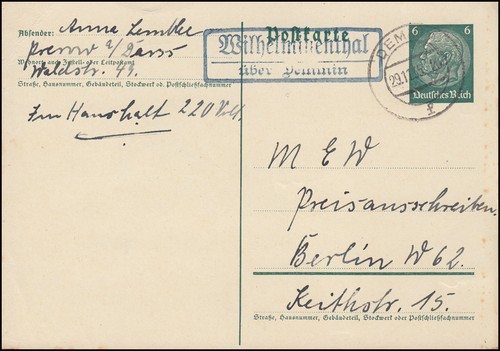 Absender: Anna Lembke
Prerow a/Darss
Wohnort, auch Zustell- oder Leitpostamt
Waldstr. 49.
Straße, Hausnummer, Gebäudeteil, Stockwerk od. Postschließfachnummer
Im Haushalt 220 Volt.
Postkarte
Wilhelminenthal
über Demmin
DEM
29.11
6 6
Deutsches Reich
M E W
Preisausschreiben.
Berlin W 62.
Keithstr. 15.
Straße, Hausnummer, Gebäudeteil, Stockwerk oder Postschließfachnummer